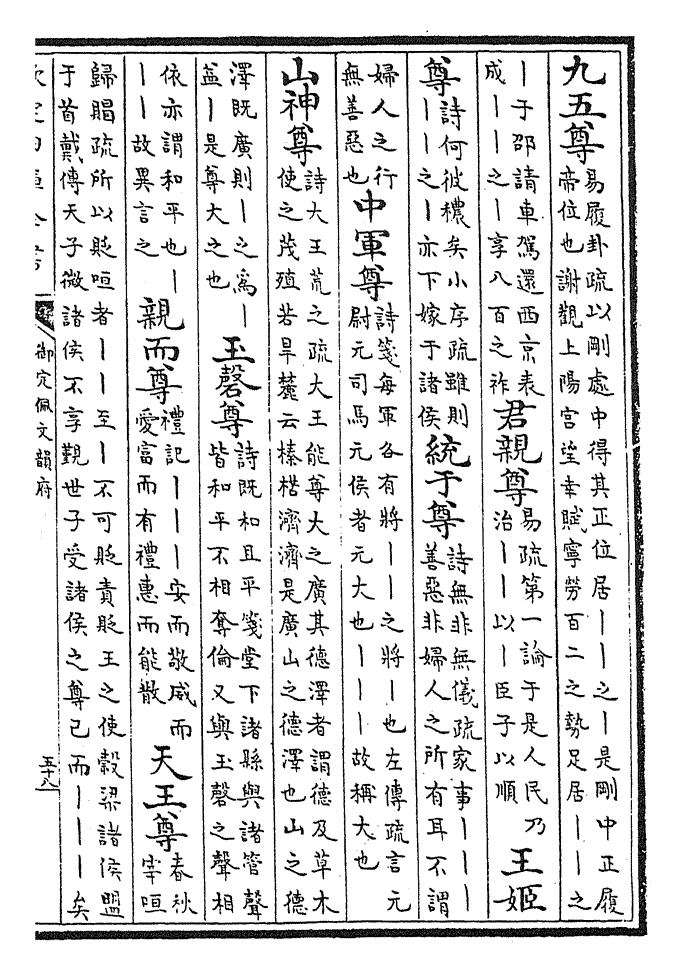 九五尊
易履卦疏以剛處中得其正位居丨丨之丨是剛中正履
帝位也謝觀上陽宮望幸賦寧勞百二之勢足居丨丨之
丨于邵請車駕還西京表
成丨丨之丨享八百之祚
君親尊
易疏第一論于是人民乃
治丨丨以丨臣子以順
王姬
尊
詩何彼穠矣小序疏雖則
丨丨之丨亦下嫁于諸侯
統于尊
詩無非無儀疏家事丨丨丨
善惡非婦人之所有耳不謂
婦人之行
無善惡也
中軍尊
詩箋每軍各有將丨丨之將丨也左傳疏言元
尉元司馬元侯者元大也丨丨丨故稱大也
山神尊
詩大王荒之疏大王能尊大之廣其德澤者謂德及草木
使之茂殖若旱麓云榛楛濟濟是廣山之德澤也山之德
澤既廣則丨之爲丨
益丨是尊大之也
玉磬尊
詩既和且平箋堂下諸縣與諸管聲
皆和平不相奪倫又與玉磬之聲相
依亦謂和平也丨
丨丨故異言之
親而尊
禮記丨丨丨安而敬威而
愛富而有禮惠而能散
天王尊
春秋
宰咺
歸賵疏所以貶咺者丨丨至丨不可貶責貶王之使榖梁諸侯盟
于首戴傳天子微諸侯不享覲世子受諸侯之尊己而丨丨丨矣
御定佩文韻府
五十八